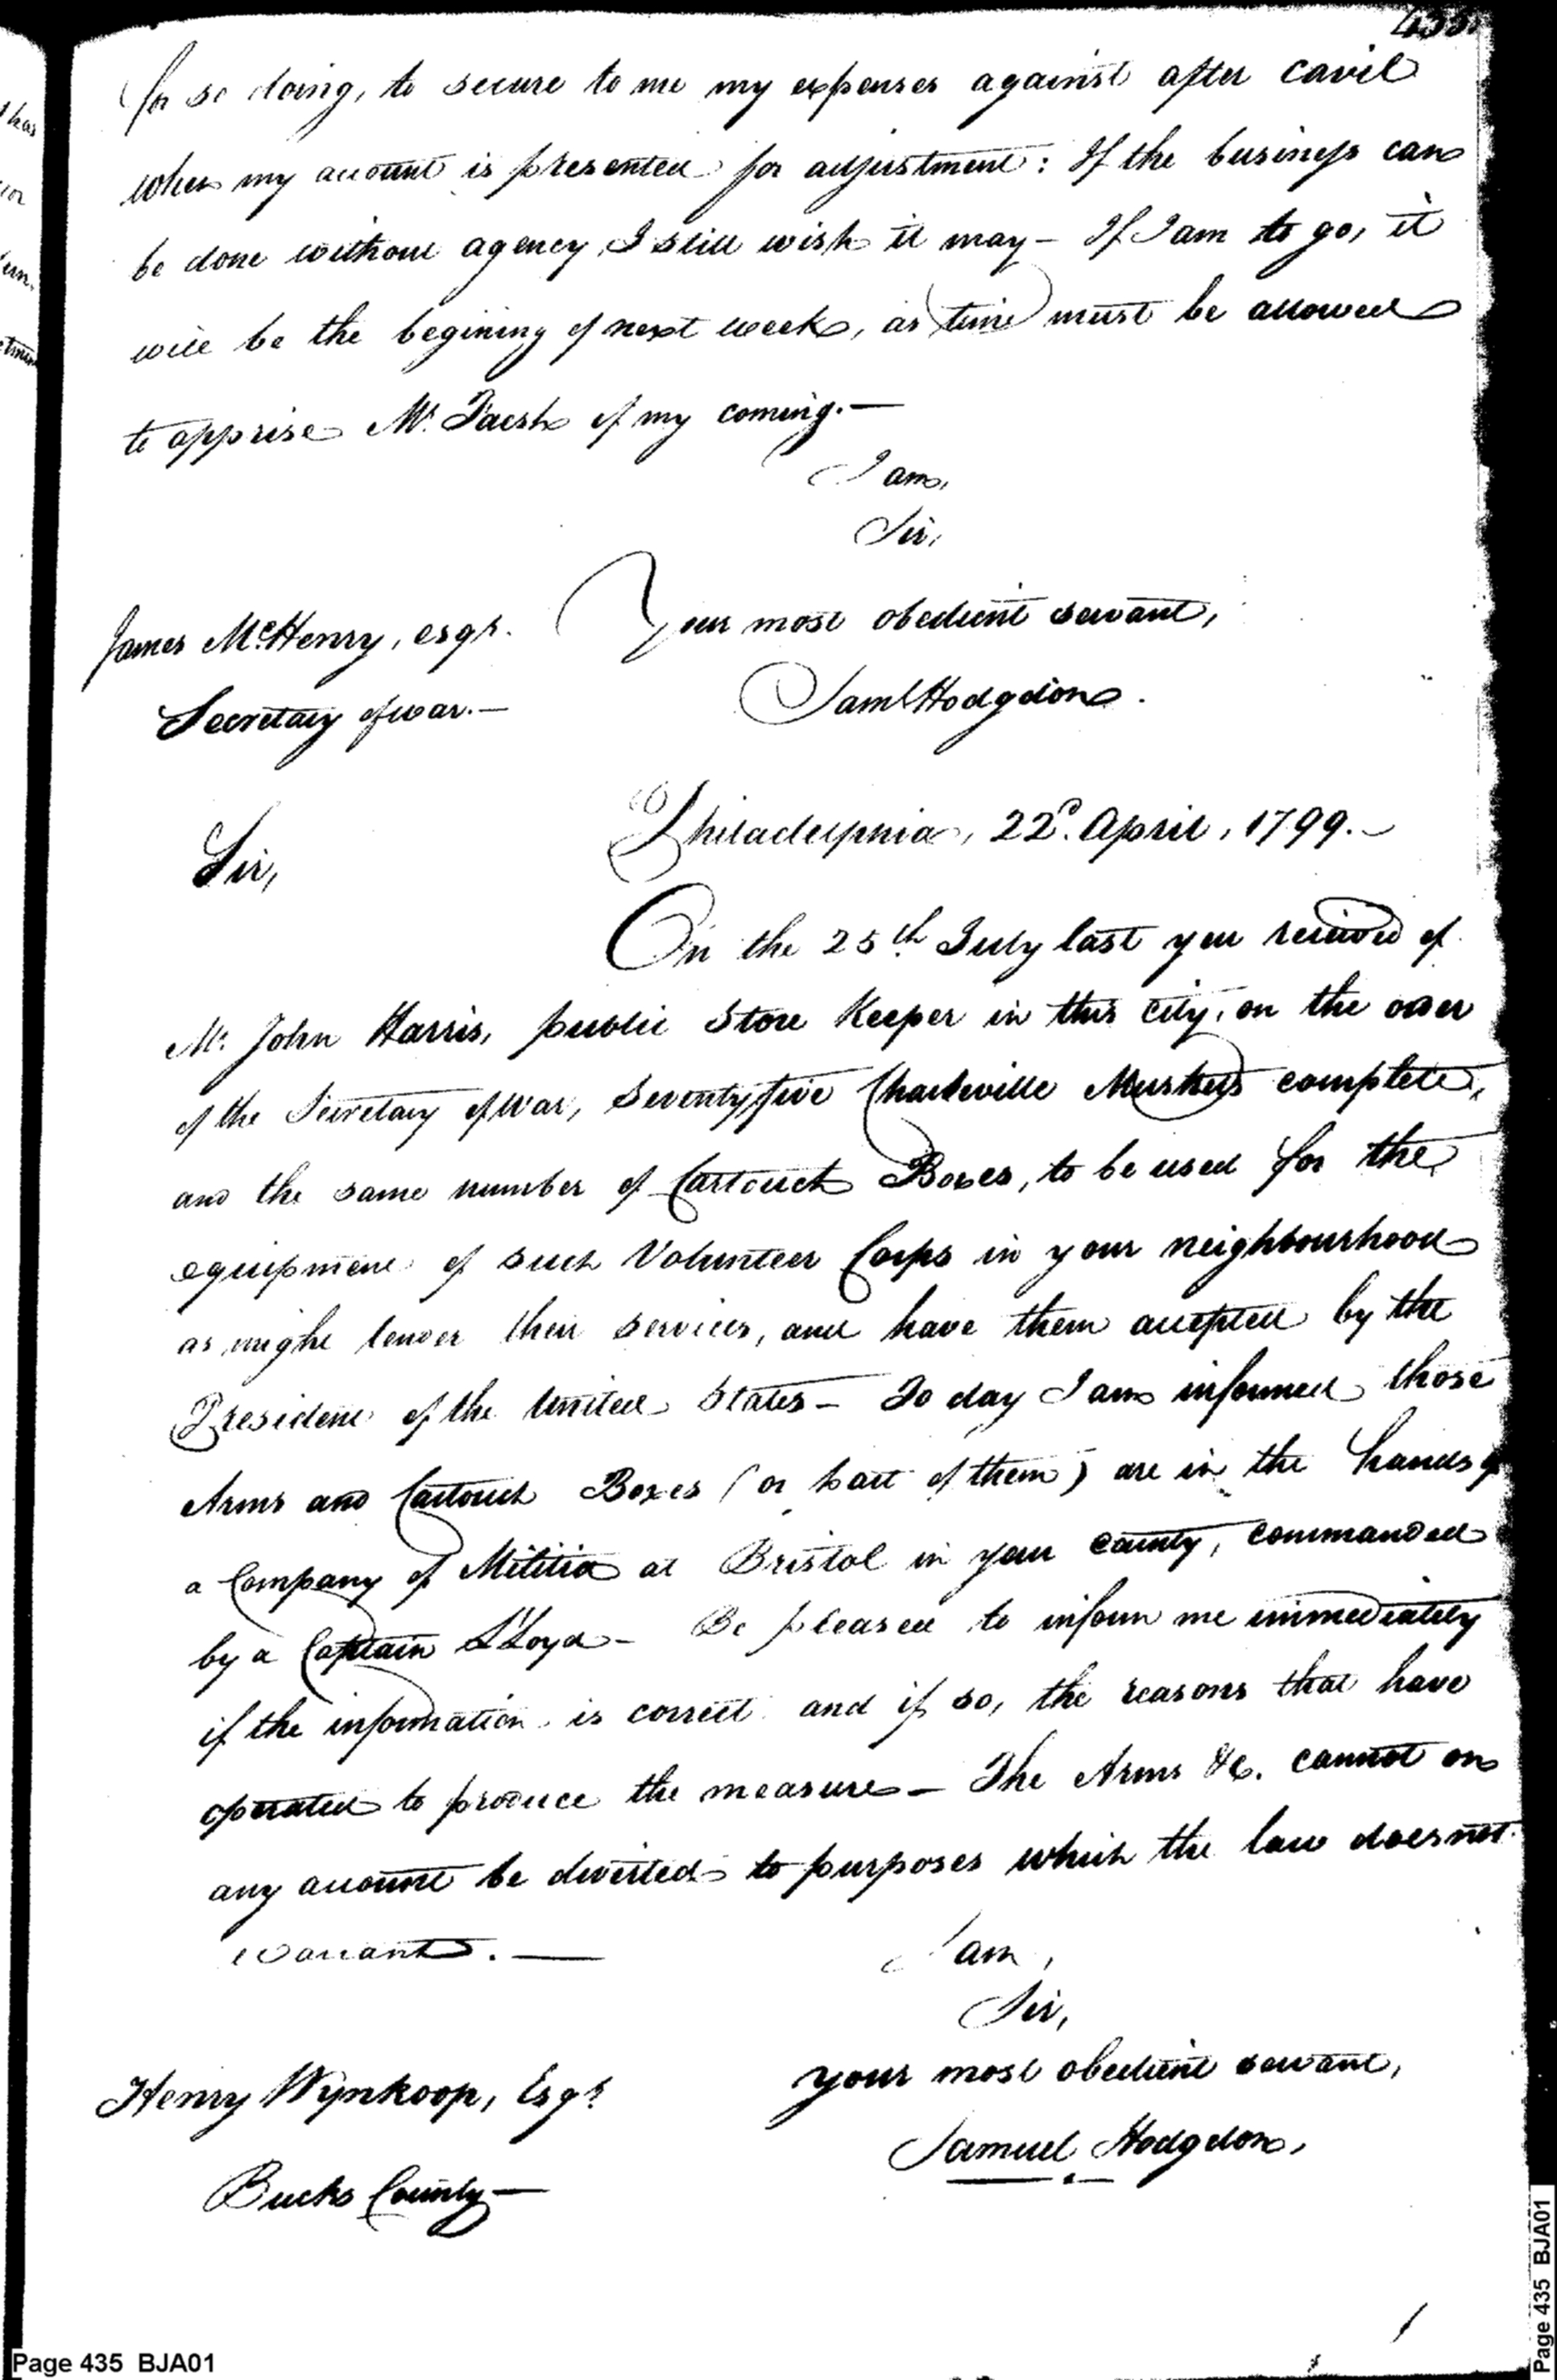 435
for so doing, to secure to me my expenses against after cavil
when my account is presented for adjustment: If the business can
be done without agency, I still wish it may – If I am to go, it
will be the begining of next week, as time must be allowed
to apprise Mr. Faesh of my coming. —
I am,
Sir,
Your most obedient servant,
James McHenry, esqr.
Saml Hodgdon.
Secretary of war. —
Philadelphia, 22d. April, 1799. –
Sir,
On the 25th July last you received of
Mr. John Harris, public Store Keeper in this city, on the order
of the Secretary of War, Seventy five Charleville Muskets complete,
and the same number of Cartouch Boxes, to be used for the
equipment of such Volunteer Corps in your neighbourhood
as might tender their services, and have them accepted by the
President of the United States – To day I am informed those
Arms and Cartouch Boxes (or part of them) are in the hands of
a Company of Militia at Bristol in your county, commanded
by a Captain L'Loyd – Be pleased to inform me immediately
if the information is correct and if so, the reasons that have
operated to produce the measure – The Arms &c. cannot on
any account be diverted to purposes which the law does not
warrant. —
I am,
Sir,
your most obedient servant,
Henry Wynkoop, Esqr
Samuel Hodgdon,
Bucks County —
Page 435 BJA01
Page 435 BJA01